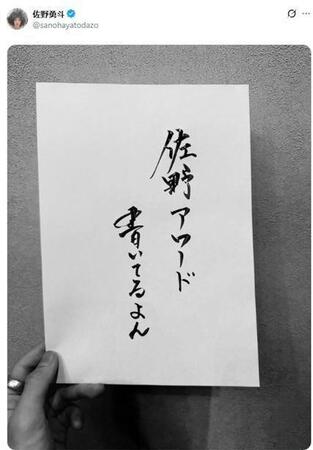 佐野勇斗
@sanohayatodazo
佐野アワード
書いてるよん